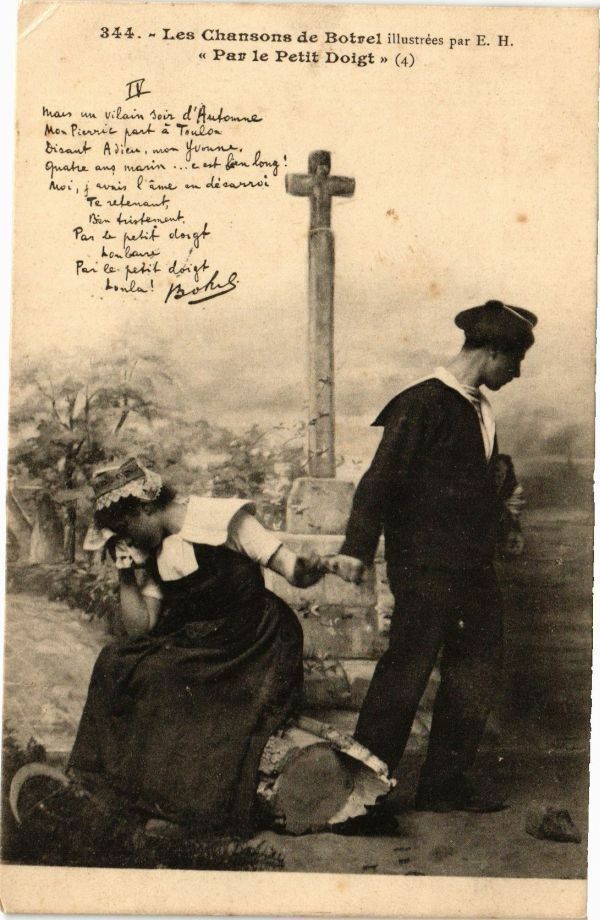 344. - Les Chansons de Botrel illustrées par E. H.
« Par le Petit Doigt » (4)
IV
Mais un vilain soir d'Automne
Mon Pierric part à Toulon
Disant Adieu, mon Yvonne,
Quatre ans marin ... c'est bien long !
Moi, j'avais l'âme en désarroi
Te retenant,
Bien tristement,
Par le petit doigt
Lonlaire
Par le petit doigt
Lonla !
Botrel